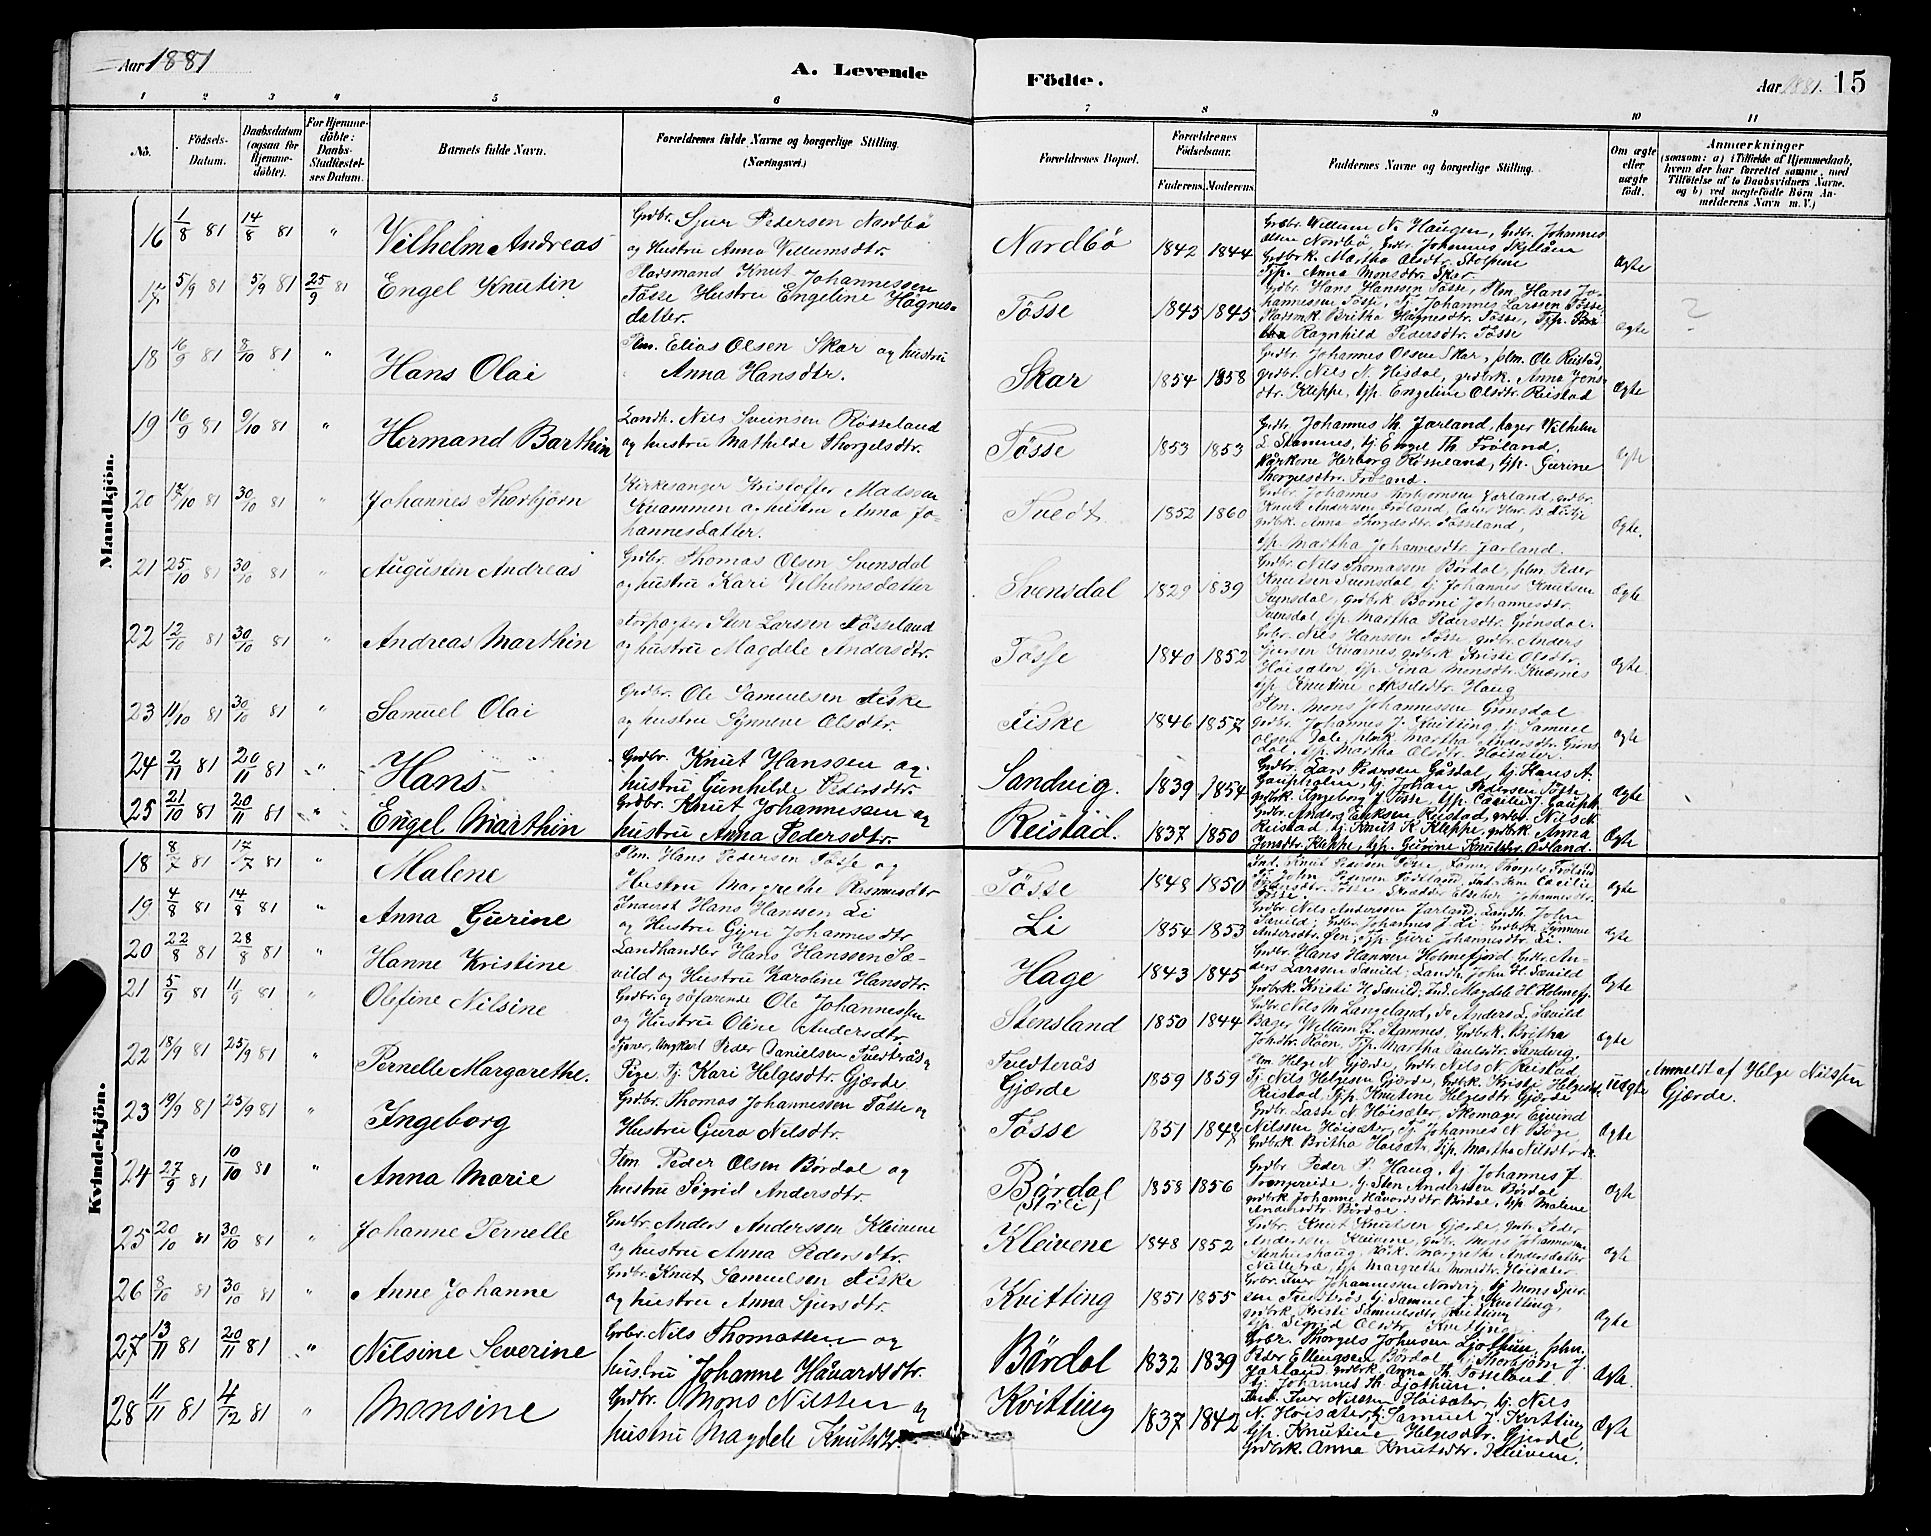 Aar 1881
A. Levende Födte.
Aar 1881. 15
1 2 3 4 5 6 7 8 9 10 11
No.
Födsels-Datum.
Daabsdatum (ogsaa for Hjemme-döbte).
For Hjemme-döbte: Daabs-Stadfæstel-ses Datum.
Barnets fulde Navn.
Forældrenes fulde Navne og borgerlige Stilling (Næringsvei.)
Forældrenes Bopæl.
Forældrenes Födselsaar.
Faderens. Moderens.
Faddernes Navne og borgerlige Stilling.
Om ægte eller uægte födt.
Anmærkninger
(saasom: a) i Tilfælde af Hjemmedaab, hvem der har forrettet samme, med Tilföielse af to Daabsvidners Navne, og b) ved uægtefödte Börn Anmelderens Navn m. V.)
Mandkjön.
16 1/8 81 14/8 81 " Vilhelm Andreas
Grdbr. Sjur Pedersen Nordbö
og Hustru Anna Villumsdtr.
Nordbö 1842 1844
Grdbr. Willum N. Haugen, Grdbr. Johannes
Olsen Nordbö, Grdbr. Johannes Skjelåen
Grdbrk. Martha Olsdtr. Stolpene
Tjp. Anna Monsdtr. Skar
Ægte
17 5/9 81 5/9 81 25/9 81 Engel Knutin
Pladsmand Knut Johannessen
Tösse Hustru Engeline Hågnes-
datter.
Tösse 1845 1845
Grdbr. Hans Hanssen Tösse, Plm. Hans Jo-
hannessen Tösse, Tj. Johannes Larssen Tösse,
Pladsmk. Britha Hågnesdtr. Tösse, Tjp.
Ragnhild Pedersdtr. Tösse
Ægte ?
18 16/9 81 8/10 81 " Hans Olai
Plm. Elias Olsen Skar og hustru
Anna Hansdtr.
Skar 1854 1858
Grdbr. Johannes Olsen Skar, plm. Ole Reistad,
grdbr. Nils N. Hisdal, grdbrk. Anna Jens-
dtr. Kleppe, tjp. Engeline Olsdtr. Reistad
Ægte
19 16/9 81 9/10 81 " Hermand Barthin
Landh. Nils Sveinsen Rösseland
og hustru Mathilde Thorgelsdtr.
Tösse 1853 1853
Grdbr. Johannes Th. Jarland, bager Vilhelm
L Stamnes, tj. Engel Th. Fröland,
kårkone Herborg Rösseland, tjp. Gurine
Thorgelsdtr. Fröland.
Ægte
20 17/10 81 30/10 81 " Johannes Thorbjörn
Kirkesanger Kristoffer Madssen
Knammen og hustru Anna Jo-
hannesdatter.
Tvedt 1852 1860
Grdbr. Johannes Thorbjørnsen Jarland, grdbr.
Knut Anderssen Fröland,
grdbrk. Anna Thorgelsdtr. Tösseland,
tjp. Martha Johannesdtr. Jarland.
Ægte.
21 25/10 81 30/10 81 " Augustin Andreas
Grdbr. Thomas Olsen Svensdal
og hustru Kari Velhelmsdatter
Svensdal 1829 1839
Grdbr. Nils Thomassen Bördal, plm. Peder
Knutsen Svensdal tj. Johannes Knutsen
Svensdal, grdbrk. Borni Johannesdtr.
Svensdal tjp. Martha Pedersdtr. Grönsdal.
Ægte
22 12/10 81 30/10 81 " Andreas Marthin
Forpagter Sten Larssen Tösseland
og hustru Magdele Andersdtr.
Tösse 1840 1852
Grbr. Nils Hanssen Tösse, grdbr. Anders
Sjursen Kvarnes, grdbrk. Kristi Olsdtr.
Höisæter, tjp. Sina Monsdtr. Kvarnes
tjp. Knutine Akseldtr. Haug
Ægte
23 11/10 81 30/10 81 " Samuel Olai
Grdbr. Ole Samuelsen Fiske
og hustru Synneve Olsdtr.
Fiske 1846 1857
Plm. Mons Johannessen Grönsdal
Grdbr. Johannes J. Kvitting tj. Samuel
Olsen Dale, plmk. Martha Andersdtr. Gröns
dal, tjp. Martha Olsdtr. Höisæter
Ægte
24 2/11 81 20/11 81 " Hans
Grdbr. Knut Hanssen og
hustru Gunhilde Pedersdtr.
Sandvig. 1839 1854
Grdbr. Lars Pedersen Gåsdal, tj. Hans A.
Gaupholm, tj. Johan Pedersen Töse
grdbrk. Ingeborg J. Tösse, tjp. Cæcilie J. Gauph.
Ægte
25 21/10 81 20/11 81 " Engel Marthin
Grdbr. Knut Johannessen og
hustru Anna Pedersdtr.
Reistad. 1837 1850
Grdbr. Anders Eriksen Reistad, grdbr. Nils N.
Reistad, tj. Knut K. Kleppe, grdbrk. Anna
Jensdtr. Kleppe, tjp. Gurine Knutsdtr. Aarland.
Ægte
Kvindekjön.
18 8/7 81 17/7 81 " Malene
Plm. Hans Pedersen Tösse og
Hustru Margrethe Rasmusdtr
Tösse 1848 1850
Ind. Knut Pedersen Tösse, Thorgels Fröland
Tj. John Pedersen Fösland, Ind. Cæcilie
Pedersdtr. Tösse Johannesdtr.
Tösse.
Ægte
19 4/8 81 14/8 81 " Anna Gurine
Inderst Hans Hanssen Li
og Hustru Gyri Johannesdtr
Li 1854 1853
Grdbr. Nils Anderssen Jarland, Landh. John
Sævild, Grdbr. Johannes J Li, Grdbrk. Synneve
Andersdtr. Øen, Tjp. Guri Johannesdtr. Li.
Ægte
20 22/8 81 28/8 81 " Hanne Kristine
Landhandler Hans Hanssen Sæ-
vild og Hustru Karoline Hansdtr.
Hage 1843 1845
Grdbr. Hans Hansen Holmefjord, Grdbr. An-
ders Larssen Sævild, Landh. John H Sævild
Grdbrk. Kristi H. Sævild, Ind. Magdele H Holmefj.
Ægte
21 5/9 81 11/9 81 " Olefine Nilsine
Grdbr. og söfarende Ole Johannessen
og Hustru Oline Andersdtr
Stensland 1850 1844
Grdbr. Nils M. Langeland, do Anders L. Sævild
Bager Wellum L. Stamnes, Grdbrk. Britha
Johsdtr. Röen, Tjp. Martha Paulsdtr. Sandvig.
Ægte
22 18/9 81 25/9 81 " Pernelle Margarethe.
Tjener, Ungkarl Peder Danielsen Tvedterås og
Pige tj. Kari Helgesdtr. Gjærde
Tvedterås
Gjærde 1859 1859
Plm. Helge N. Gjærde, Grdbr Nils N. Reistad,
Tj. Nils Helgesen Gjærde, Grdbrk. Kristi Helgesdtr.
Reistad, Tjp. Knutine Helgesdtr Gjærde
uægte Anmeldt af Helge Nilssen
Gjærde.
23 19/9 81 25/9 81 " Ingeborg
Grdbr. Thomas Johannessen Tösse og
Hustru Guro Nilsdtr.
Tösse 1851 1848
Grdbr. Lasse N. Höisæter, Skomager Eivind
Nilssen Höisæter, Tj. Johannes N. Böge,
Grdbrk Britha Höisætr, Tjp. Martha Nilsdtr do
Ægte
24 27/9 81 10/10 81 " Anna Marie
Plm Peder Olsen Bördal og
hustru Sigrid Andersdtr.
Bördal
(Stöli) 1858 1856
Grdbr. Peder P. Haug, tj. Johannes J.
Trangereide, tj. Sten Anderssen Bördal
grdbrk Johanne Håvardsdtr. Bördal, tjp. Malene
Andersdtr. Bördal
Ægte
25 20/10 81 30/10 81 " Johanne Pernelle
Grdbr. Anders Anderssen Kleivene
og hustru Anna Pedersdtr.
Kleivene 1848 1852
Grdbr. Knut Knutsen Gjerde, grdbr. Peder
Andersen Kleivene, grdbr. Mons Johannessen
Stenhushaug, Margrethe Andersdatter
Nilletræ, tjp. Margrethe Monsdtr. Höisæter.
Ægte
26 8/10 81 30/10 81 " Anne Johanne
Grdbr. Knut Samuelsen Fiske
og hustru Anna Sjursdtr.
Kvitting 1851 1855
Grbr. Iver Johannessen Nordvig tj. Mons Sjur-
sen Tvedterås tj. Samuel J. Kvitting,
grdbrk. Kristi Samuelsdtr. Kvitting
tjp. Sigrid Olsdtr. Kvitting
Ægte
27 13/11 81 20/11 81 " Nilsine Severine
Grbr. Nils Thomassen og
hustru Johanne Håvardsdtr.
Bördal 1832 1839
Grbr. Thorgels Johnsen Ljothun, plm.
Peder Ellingsen Bördal, tj. Thorbjörn J.
Jarland grdbrk. Anna Th. Tösseland
tj. Johannes Th. Ljothun.
Ægte.
28 11/11 81 4/12 81 " Monsine
Grdbr. Mons Nilssen og
hustru Magdele Knutsdtr
Kvitting 1837 1842
Ind. Iver Nilssen Höisæter, tj. Nils
N. Höisæter, tj. Samuel J. Kvitting
tjp. Knutine Helgesdtr. Gjerde,
Grdbrk. Anna Knutsdtr. Kleivene.
Ægte